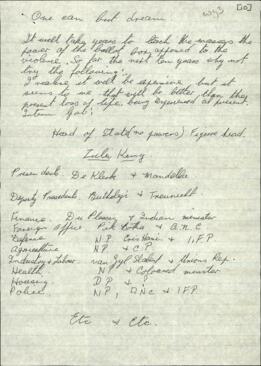 [50]
One can but dream
It will take years to teach the masses the
power of the ballot box, opposed to the
violence. So for the next ten years why not
try the following:
I realise it will be expensive, but it
seems to me that will be better, than the
present loss of life, being experienced at present.
Interim Gov:
Head of State (no powers) Figure head.
Presidents. De Klerk & Mandella
Deputy Presidents. Buthelezi & Treurnicht
Finance. Du Plessy & Indian minister
Foreign Office Pik Botha & A.N.C
Defence N.P. Chris Hani & I.F.P
Agriculture N.P. & C.P.
Industry & Labour. van Zyl Slabbert & Unions Rep.
Health. N.P & Coloured minister
Housing D.P & ?
Police. N.P, ANC & I.F.P
Etc & Etc.